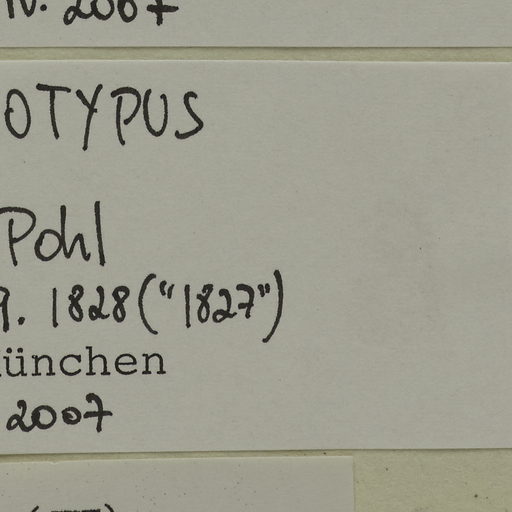 IV. 2007
OTYPUS
Pohl
9. 1828 ("1827")
ünchen
2007